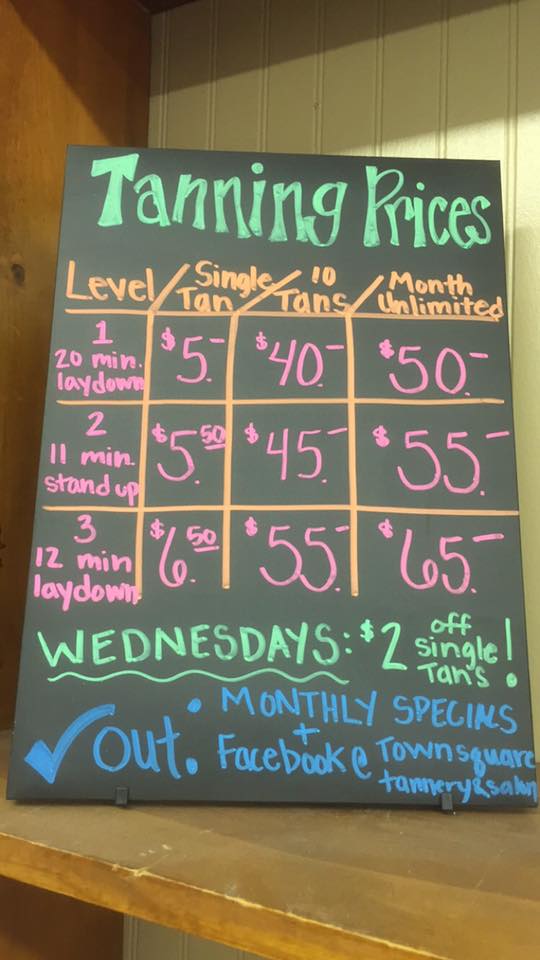 Tanning Prices
Level / Single Tan / 10 Tans / Month Unlimited
1
20 min. laydown
$5.- $40.- $50.-
2
11 min. stand up
$5.50 $45.- $55.-
3
12 min laydown
$6.50 $55.- $65.-
WEDNESDAYS: $2 off single Tan's!
✓out: MONTHLY SPECIALS
+
Facebook @ Townsquare
tannery & salon